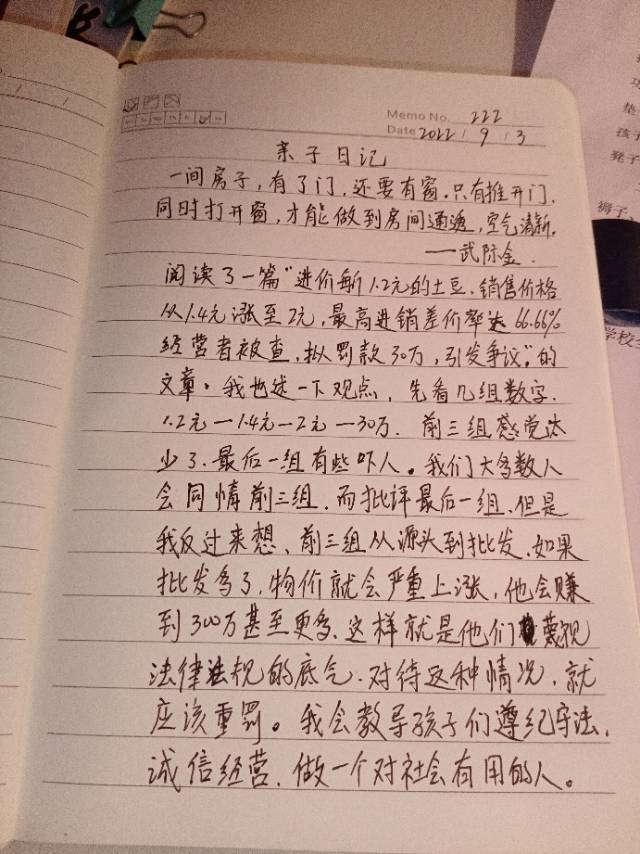 Memo No. 222
Date 2022 / 9 / 3
亲子日记
一间房子，有了门，还要有窗。只有推开门，
同时打开窗，才能做到房间通透，空气清新。
——武际金.
阅读了一篇"进价每斤1.2元的土豆，销售价格
从1.4元涨至2元，最高进销差价率达66.66%
经营者被查，拟罚款30万，引发争议。"的
文章。我也述一下观点，先看几组数字.
1.2元—1.4元—2元—30万. 前三组感觉太
少了.最后一组有些吓人。我们大多数人
会同情前三组.而批评最后一组.但是
我反过来想、前三组从源头到批发.如果
批发多了，物价就会严重上涨，他会赚
到300万甚至更多.这样就是他们蔑视
法律法规的底气.对待这种情况，就
应该重罚。我会教导孩子们遵纪守法，
诚信经营.做一个对社会有用的人。
孩子
凳子
褥子、
学校